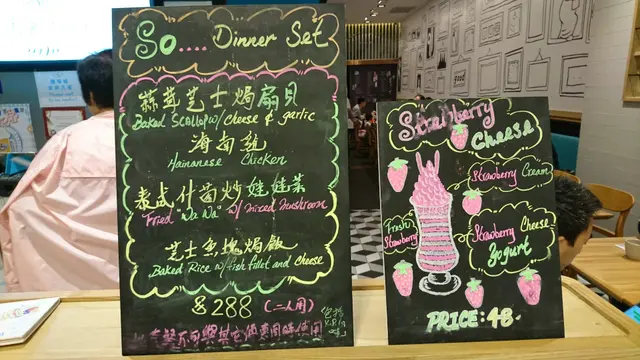 So.... Dinner Set
蒜茸芝士焗扇貝
Baked Scallop w/ Cheese & garlic
海南雞
Hainanese Chicken
什菌炒娃娃菜
Fried "Wa Wa" w/ mixed mushroom
芝士魚塊焗飯
Baked Rice w/ fish fillet and cheese
$288 (二人用)
Strawberry
Cheese
Strawberry Cream
Fresh
Strawberry
Strawberry Cheese
Yogurt
PRICE: 48-